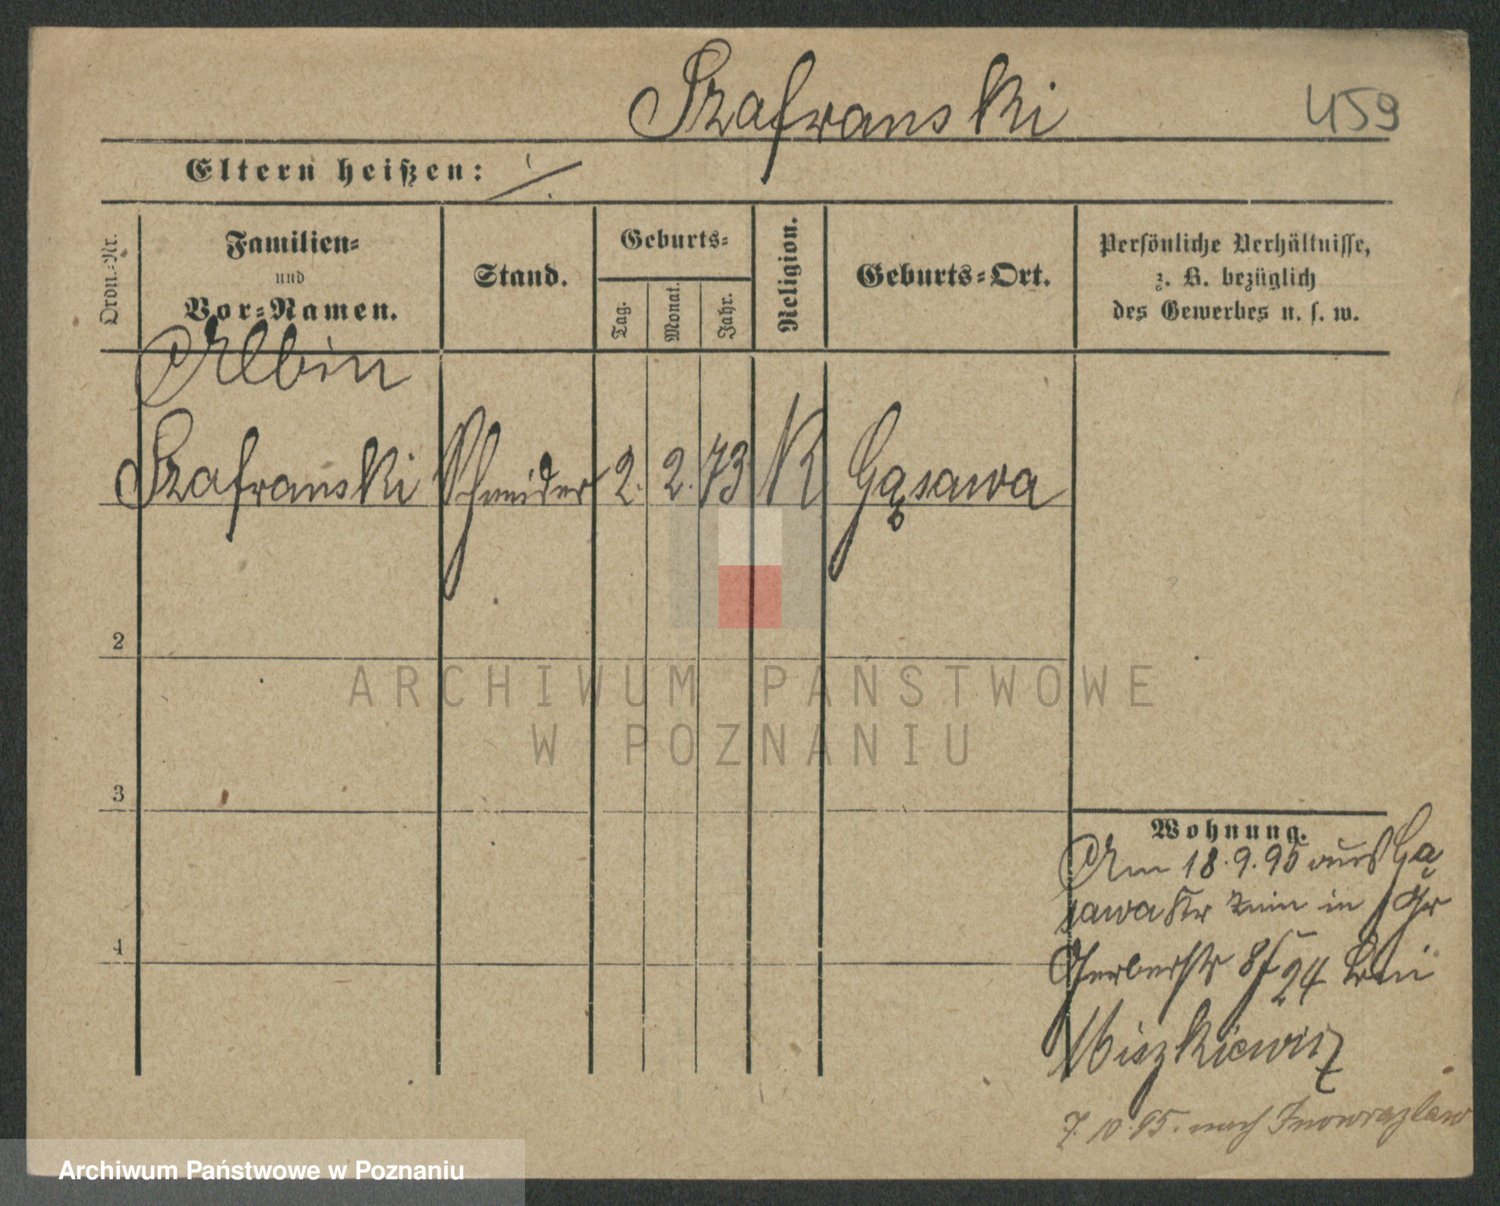 Szafranski
459
Eltern heißen: /
Ordn.-Nr.
Familien-
und
Vor-Namen.
Stand.
Geburts-
Tag.
Monat.
Jahr.
Religion.
Geburts-Ort.
Persönliche Verhältnisse,
z. B. bezüglich
des Gewerbes u. s. w.
Albin
Szafranski Schneider 2. 2. 73 K Gąsawa
2
3
4
Wohnung.
Am 18.9.95 aus Gą
sawa Kr Znin in Gr
Gerberstr 8 24 bei
Miszkiewicz
7. 10. 95. nach Inowrazlaw
ARCHIWUM PAŃSTWOWE
W POZNANIU
Archiwum Państwowe w Poznaniu